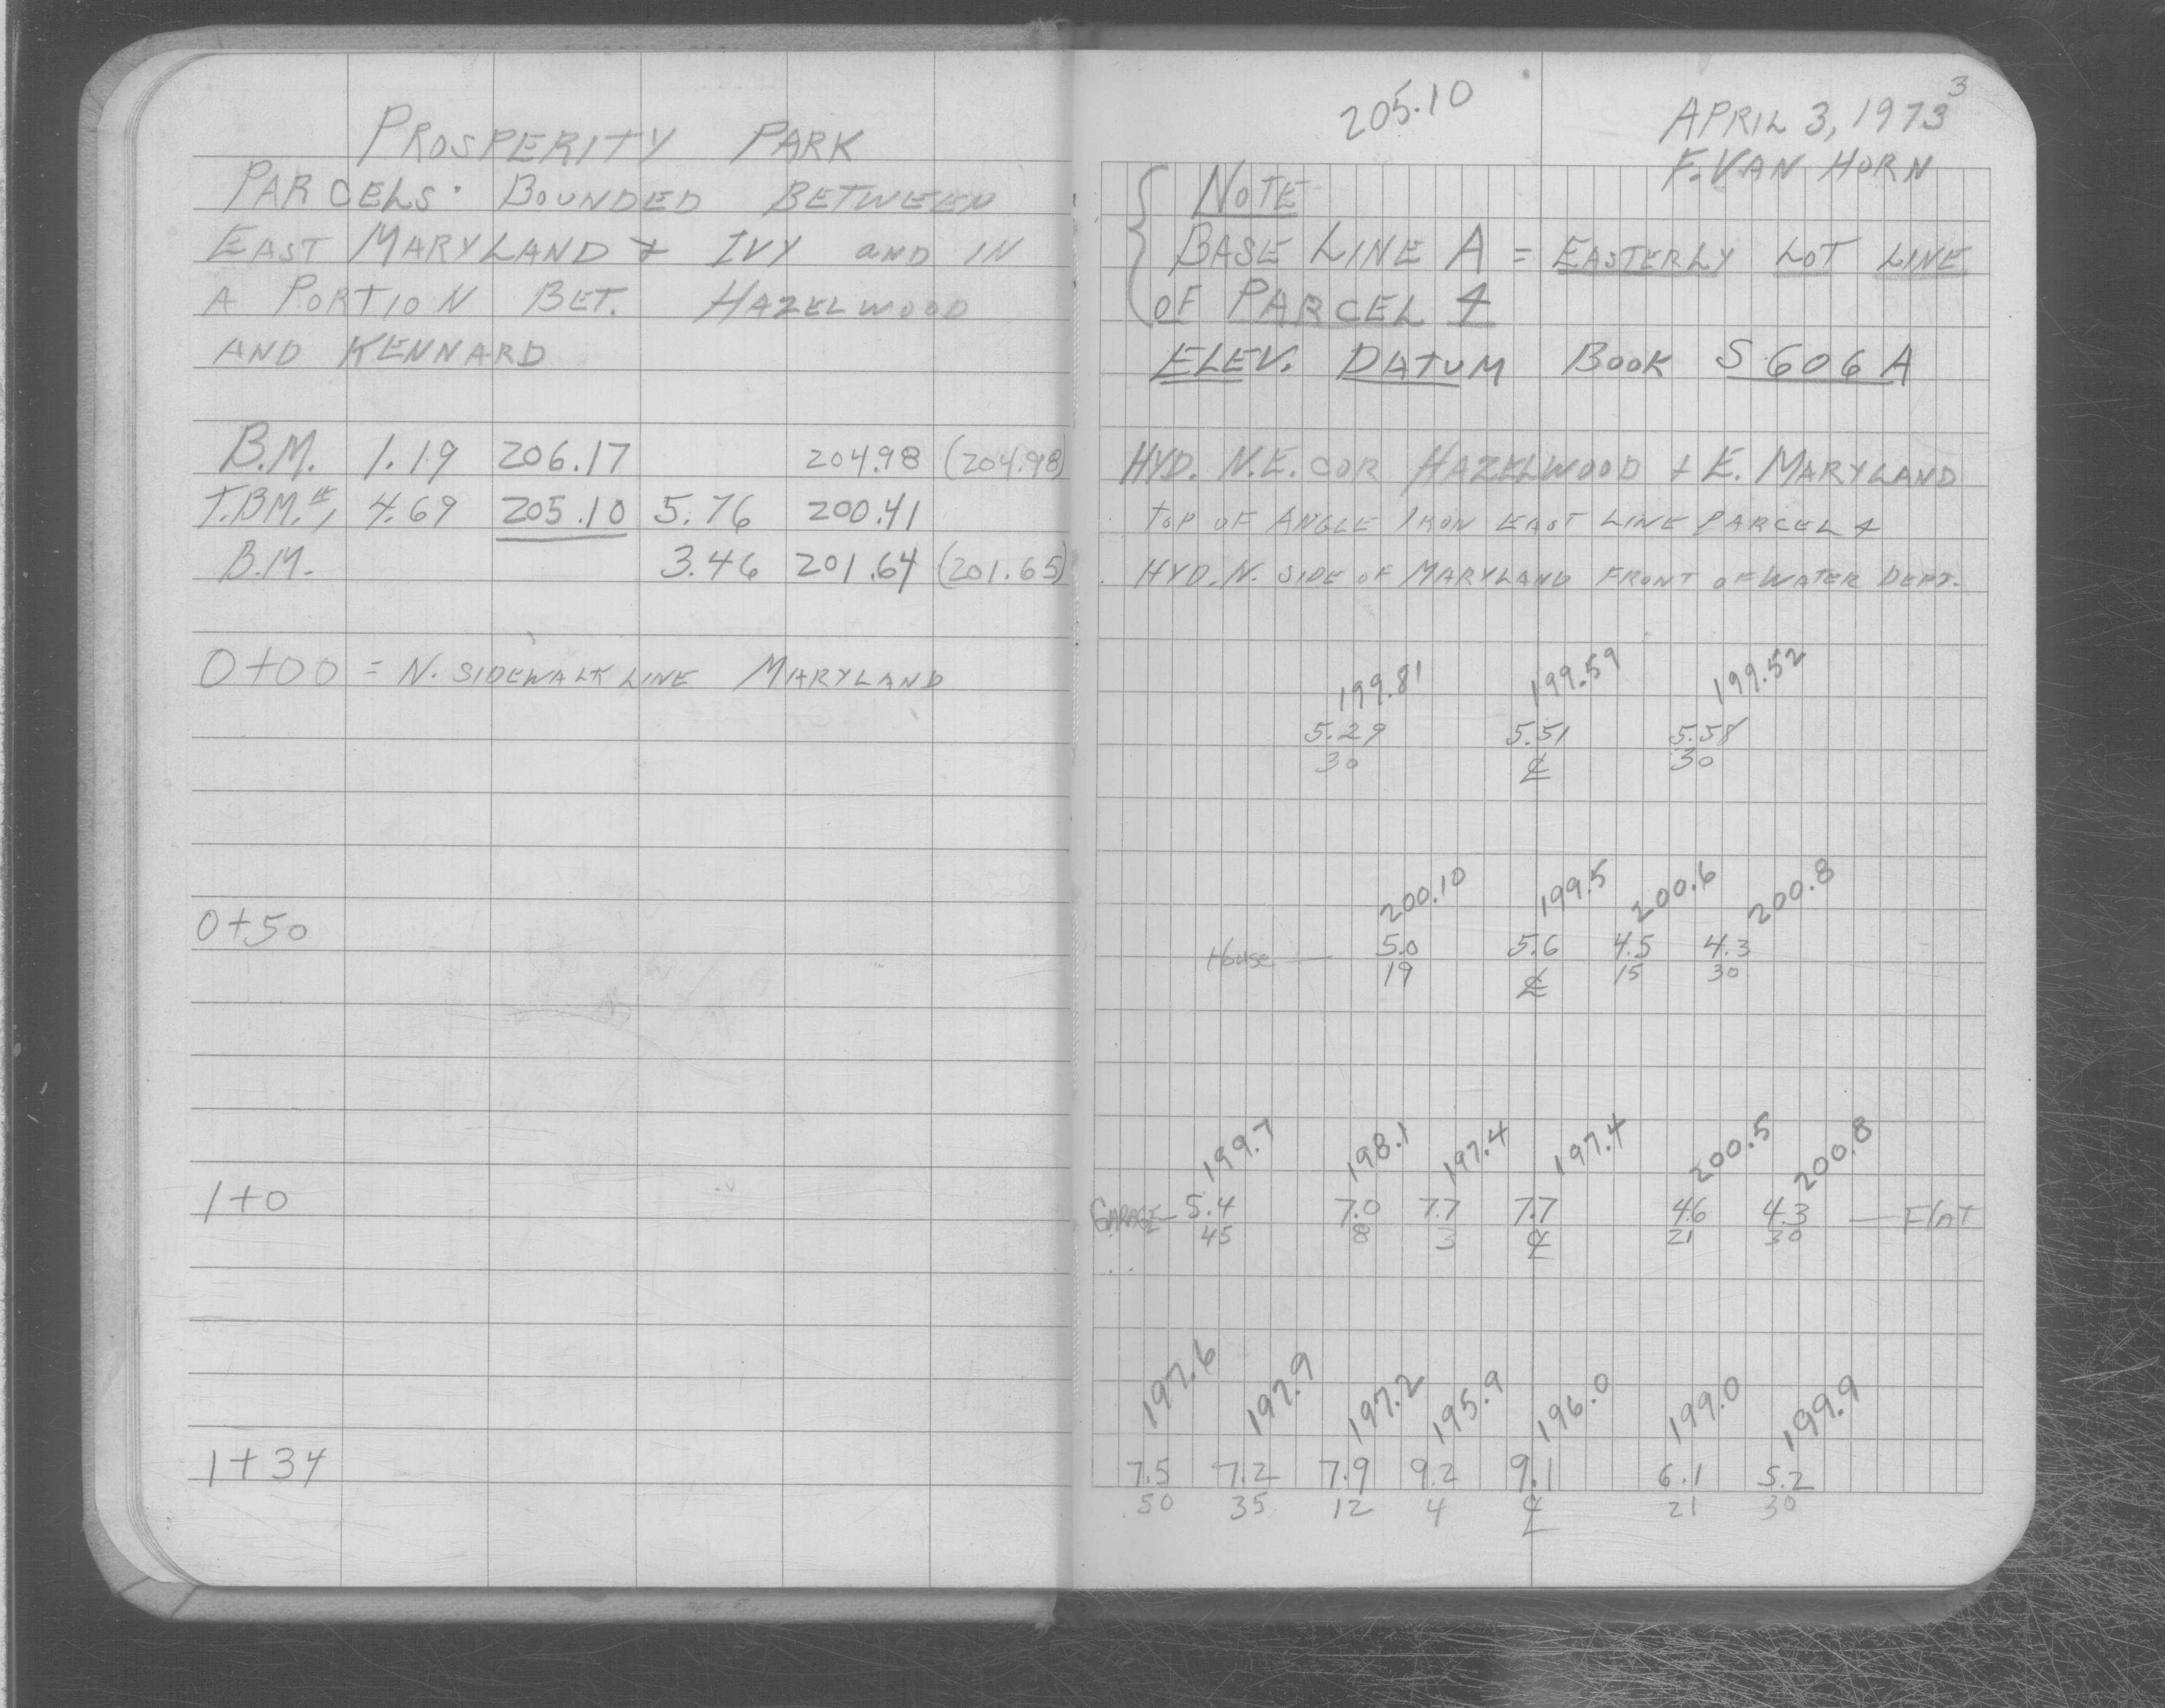 PROSPERITY PARK
PARCELS BOUNDED BETWEEN
EAST MARYLAND & IVY AND IN
A PORTION BET. HAZELWOOD
AND KENNARD
B.M. 1.19 206.17 204.98 (204.98)
T.B.M.#1 4.69 205.10 5.76 200.41
B.M. 3.46 201.64 (201.65)
0+00 = N. SIDEWALK LINE MARYLAND
0+50
1+0
1+34
3
205.10 APRIL 3, 1973
F. VAN HORN
NOTE
BASE LINE A = EASTERLY LOT LINE
OF PARCEL 4
ELEV. DATUM BOOK S606A
HYD. N.E. COR HAZELWOOD + E. MARYLAND
TOP OF ANGLE IRON EAST LINE PARCEL 4
HYD. N. SIDE OF MARYLAND FRONT OF WATER DEPT.
199.81 199.59 199.52
5.29 5.51 5.58
30 ℄ 30
200.10 199.5 200.6 200.8
House — 5.0 5.6 4.5 4.3
19 ℄ 15 30
199.7 198.1 197.4 197.4 200.5 200.8
GARAGE — 5.4 7.0 7.7 7.7 4.6 4.3 — FlAT
45 8 3 ℄ 21 30
197.6 197.9 197.2 195.9 196.0 199.0 199.9
7.5 7.2 7.9 9.2 9.1 6.1 5.2
50 35 12 4 ℄ 21 30